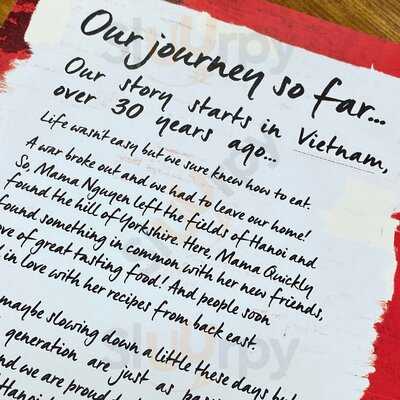 Our journey so far...
Our story starts in Vietnam,
over 30 years ago...
Life wasn't easy but we sure knew how to eat.
A war broke out and we had to leave our home!
So, Mama Nguyen left the fields of Hanoi and
found the hill of Yorkshire. Here, Mama Quickly
found something in common with her new friends,
of great tasting food! And people soon
in love with her recipes from back east.
maybe slowing down a little these days but
generation are just as
and we are proud
Hanoi
Sluurpy